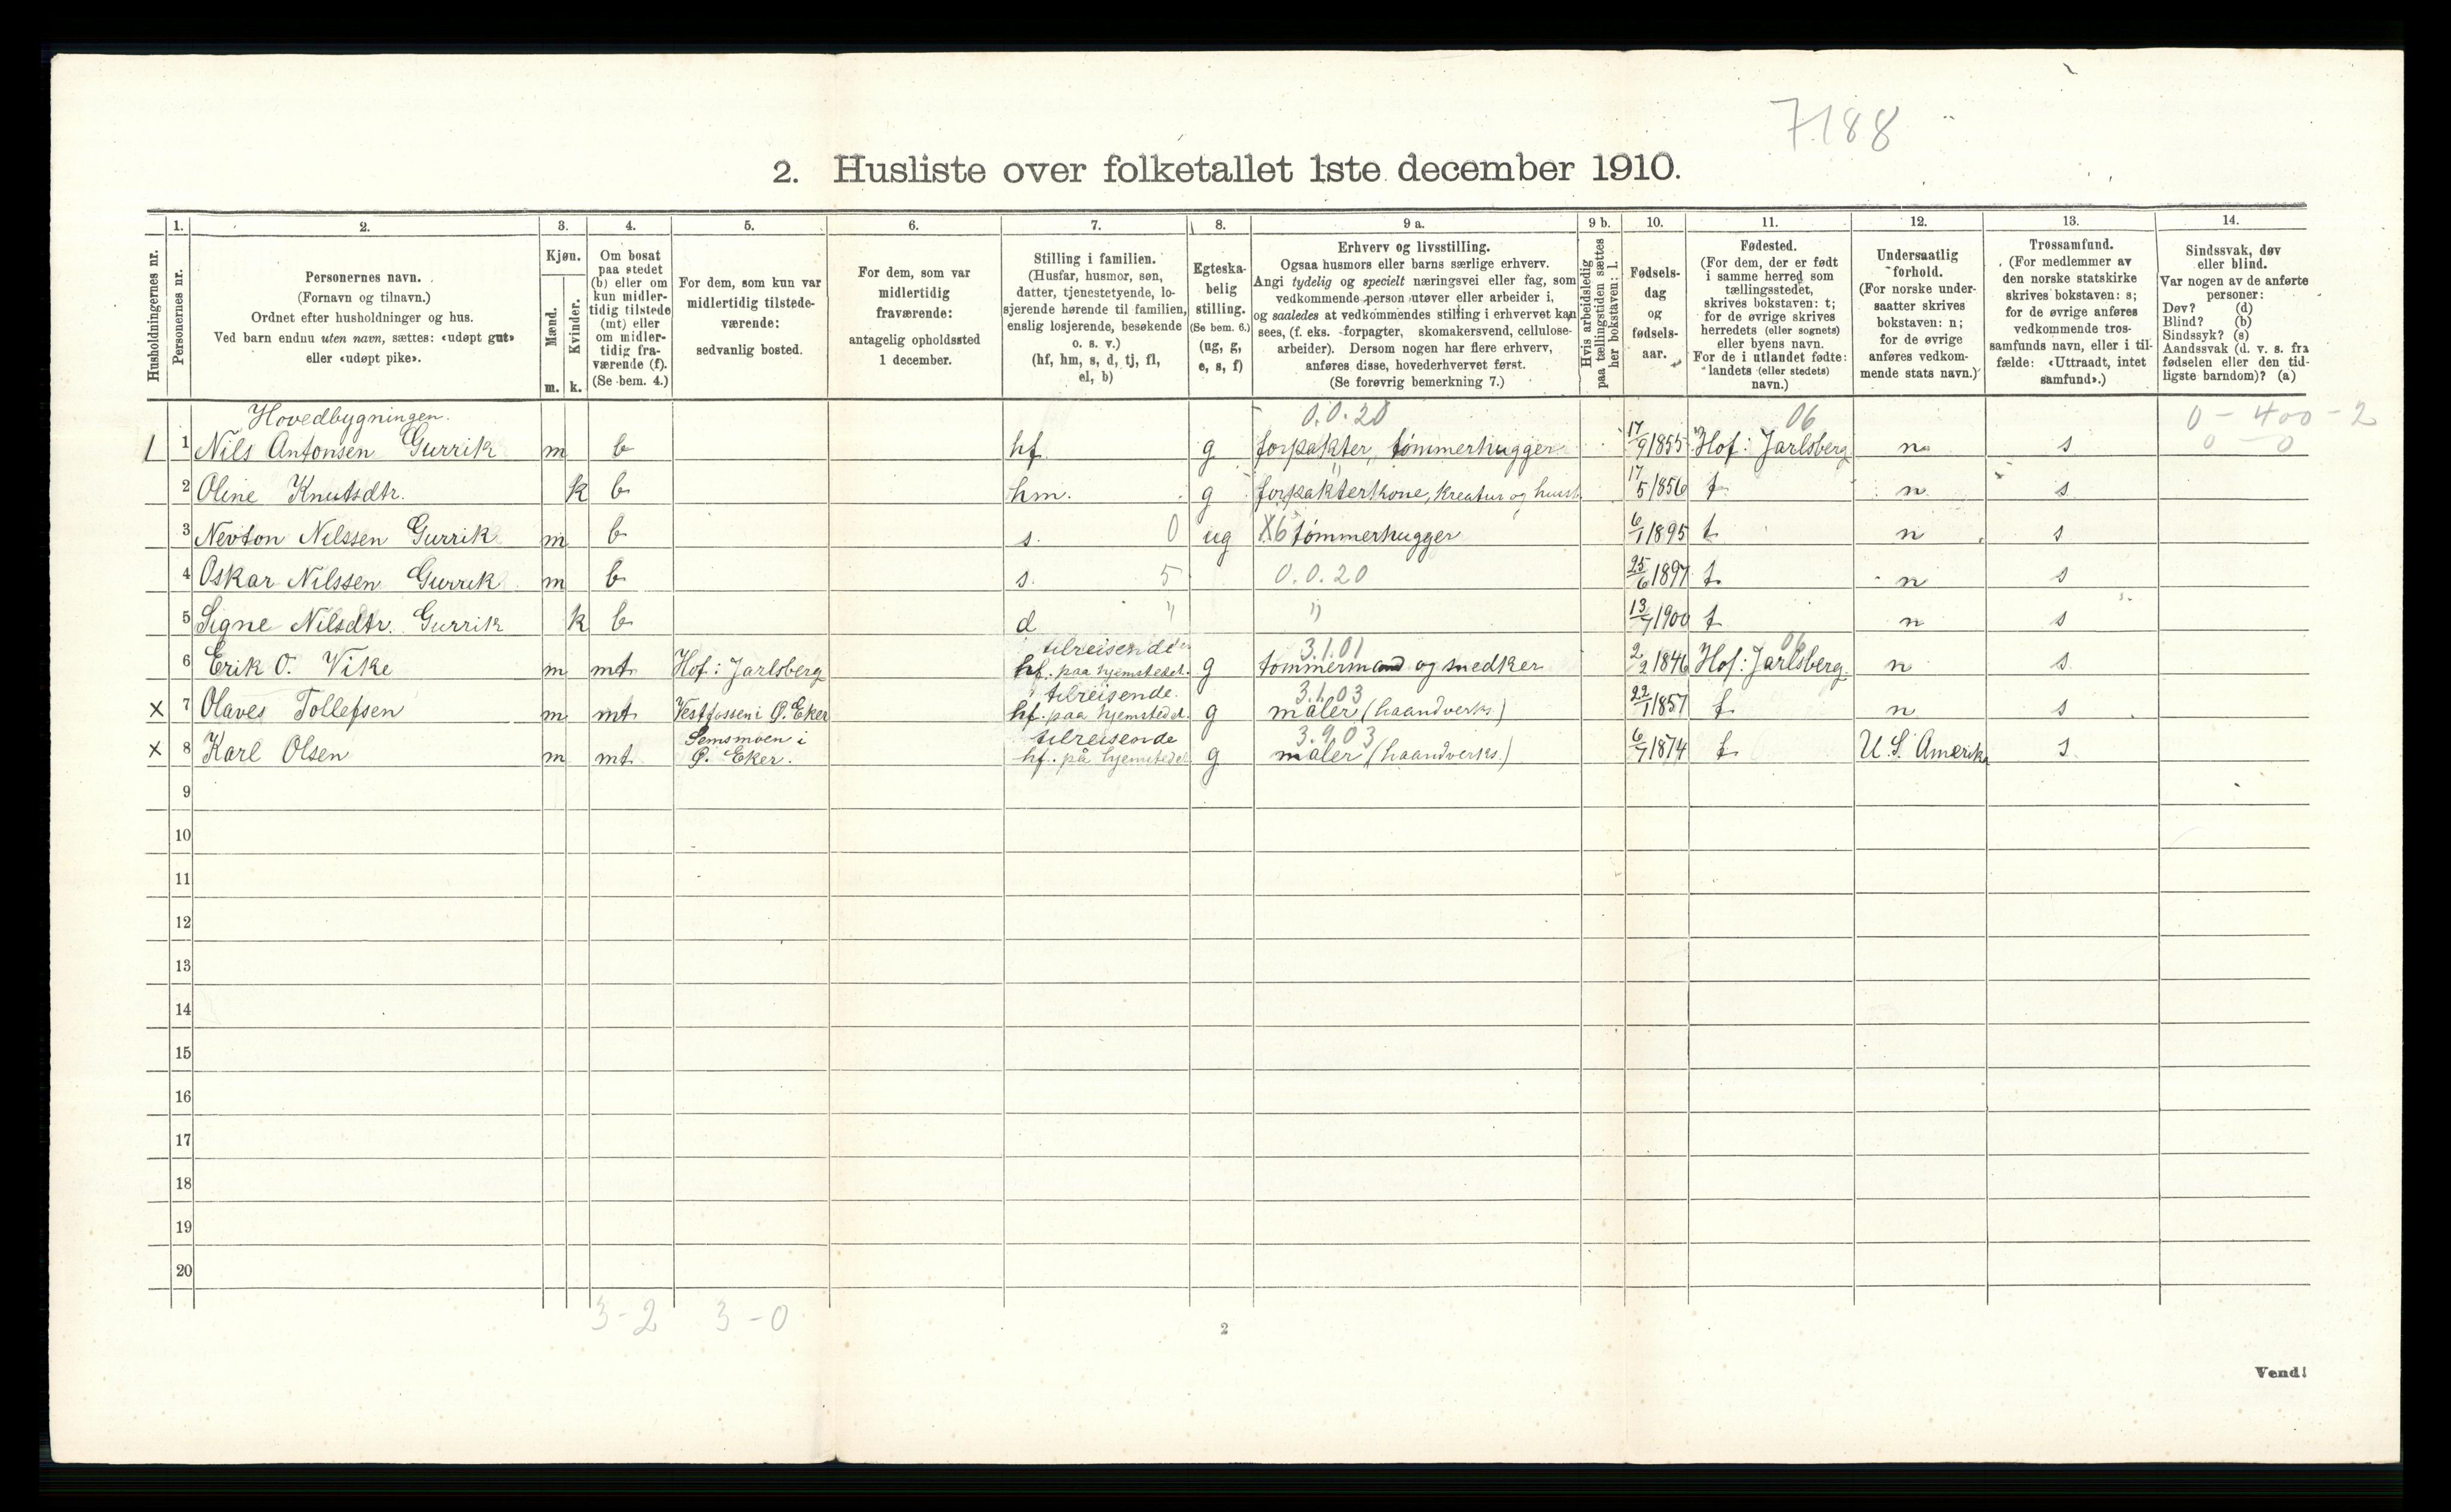 7188
2. Husliste over folketallet 1ste december 1910.
Husholdningernes nr.
1. Personernes nr.
2. Personernes navn.
(Fornavn og tilnavn.)
Ordnet efter husholdninger og hus.
Ved barn endnu uten navn, sættes: «udøpt gut»
eller «udøpt pike».
3. Kjøn.
Mænd. m.
Kvinder. k.
4. Om bosat
paa stedet
(b) eller om
kun midler-
tidig tilstede
(mt) eller
om midler-
tidig fra-
værende (f).
(Se bem. 4.)
5. For dem, som kun var
midlertidig tilstede-
værende:
sedvanlig bosted.
6. For dem, som var
midlertidig
fraværende:
antagelig opholdssted
1 december.
7. Stilling i familien.
(Husfar, husmor, søn,
datter, tjenestetyende, lo-
sjerende hørende til familien,
enslig losjerende, besøkende
o. s. v.)
(hf, hm, s, d, tj, fl,
el, b)
8. Egteska-
belig
stilling.
(Se bem. 6.)
(ug, g,
e, s, f)
9 a. Erhverv og livsstilling.
Ogsaa husmors eller barns særlige erhverv.
Angi tydelig og specielt næringsvei eller fag, som
vedkommende person utøver eller arbeider i,
og saaledes at vedkommendes stilling i erhvervet kan
sees, (f. eks. forpagter, skomakersvend, cellulose-
arbeider). Dersom nogen har flere erhverv,
anføres disse, hovederhvervet først.
(Se forøvrig bemerkning 7.)
9 b. Hvis arbeidsledig
paa tællingstiden sættes
her bokstaven: l.
10. Fødsels-
dag
og
fødsels-
aar.
11. Fødested.
(For dem, der er født
i samme herred som
tællingsstedet,
skrives bokstaven: t;
for de øvrige skrives
herredets (eller sognets)
eller byens navn.
For de i utlandet fødte:
landets (eller stedets)
navn.)
12. Undersaatlig
forhold.
(For norske under-
saatter skrives
bokstaven: n;
for de øvrige
anføres vedkom-
mende stats navn.)
13. Trossamfund.
(For medlemmer av
den norske statskirke
skrives bokstaven: s;
for de øvrige anføres
vedkommende tros-
samfunds navn, eller i til-
fælde: «Uttraadt, intet
samfund».)
14. Sindssvak, døv
eller blind.
Var nogen av de anførte
personer:
Døv? (d)
Blind? (b)
Sindssyk? (s)
Aandssvak (d. v. s. fra
fødselen eller den tid-
ligste barndom)? (a)
Hovedbygningen. 0.0.20 06 0 - 400 - 2
1 1 Nils Antonsen Gurrik m b hf g forpakter, tømmerhugger 17/9 1855 Hof: Jarlsberg n s 0 - 0
2 Oline Knutsdtr. k b hm. g forpakterkone, kreatur og husst. 17/5 1856 t n s
3 Nevton Nilssen Gurrik m b s. 0 ug X6 tømmerhugger 6/1 1895 t n s
4 Oskar Nilssen Gurrik m b s. 5 0.0.20 25/6 1897 t n s
5 Signe Nilsdtr. Gurrik k b d " " 13/7 1900 t n s
tilreisende 3.1.01 06
6 Erik O. Vike m mt Hof: Jarlsberg hf. paa hjemstedet. g tømmermand og snedker 2/2 1846 Hof: Jarlsberg. n s
tilreisende. 3.1.03
X 7 Olaves Tollefsen m mt Vestfossen i Ø. Eker hf. paa hjemstedet. g maler (haandverks.) 22/1 1857 t n s
Semsmoen i tilreisende 3.9.03
X 8 Karl Olsen m mt Ø. Eker. hf. på hjemstedet g maler (haandverks.) 6/7 1874 t U. S. Amerika s
9
10
11
12
13
14
15
16
17
18
19
20
3 - 2 3 - 0
2
Vend!